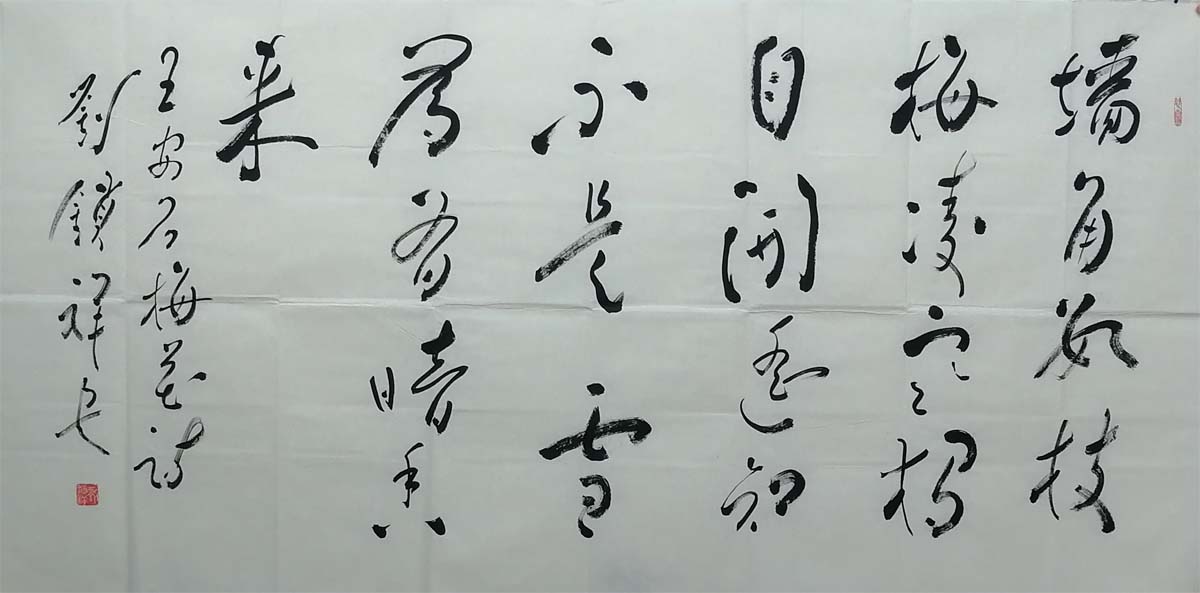 墙角数枝
梅凌寒独
自開遥知
不是雪
為有暗香
来
王安石梅花詩
劉鎖祥书